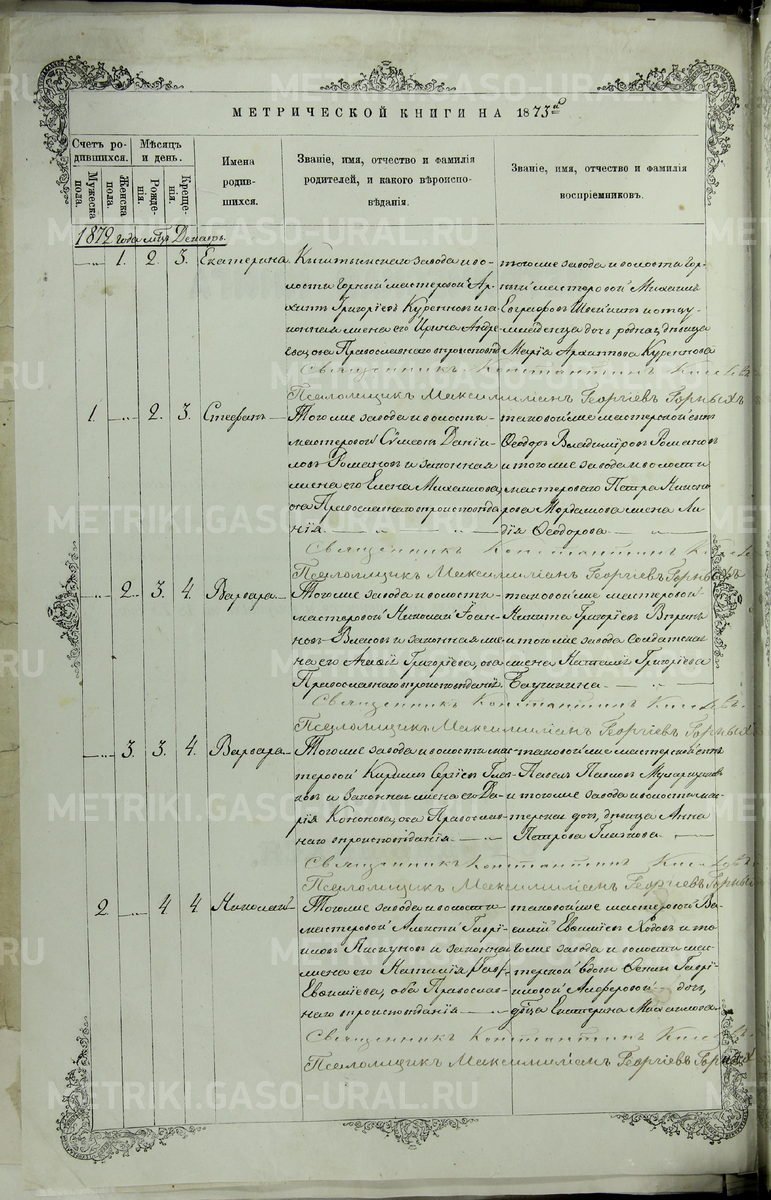 METRIKI.GASO-URAL.RU
МЕТРИЧЕСКОЙ КНИГИ НА 1873й
Счетъ ро-
дившихся.
Мѣсяцъ
и день.
Мужеска
пола.
Женска
пола.
Рожде-
нія.
Креще-
нія.
Имена
родив-
шихся.
Званіе, имя, отчество и фамилія
родителей, и какого вѣроиспо-
вѣданія.
Званіе, имя, отчество и фамилія
воспріемниковъ.
1872 года мца Декабр.
1. 2. 3. Екатерина.
Кыштымскаго завода и во-
лости горный мастеровой Ар-
хипъ Григоріевъ Куренновъ и за-
конная жена его Ирина Андре-
ева, оба Православнаго вѣроисповѣд
тогоже завода и волости гор-
ный мастеровой Михаилъ
Евграфовъ и отцу
младенца дочь родная, дѣвица
Марія Архиппова Куреннова
Священникъ Константинъ
Псаломщикъ Максимиліанъ Георгіевъ Горныхъ
1. 2. 3. Стефанъ
Тогоже завода и волости
мастеровой Сѵмеонъ Даніи-
ловъ Романовъ и законная
жена его Елена Михаилова,
оба Православнаго вѣроисповѣда
нія.
таковойже мастерской сынъ
Ѳеодоръ Владиміровъ Романовъ
и тогоже завода и волости
мастероваго Петра
Мордасова жена Ли-
дія Ѳеодорова
Священникъ Константинъ
Псаломщикъ Максимиліанъ Георгіевъ Горныхъ
2. 3. 4. Варвара
Тогоже завода и волости
мастеровой Николай Іоан-
новъ Власовъ и законная же-
на его Григоріева, оба
Православнаго вѣроисповѣданія.
таковойже мастеровой
Никита Григоріевъ
и тогоже завода Солдатская
жена Наталія Григоріева
Священникъ Константинъ
Псаломщикъ Максимиліанъ Георгіевъ Горныхъ
3. 3. 4. Варвара
Тогоже завода и волости мас-
теровой Кириллъ Сергіевъ Глаз-
ковъ и Законная жена его Да-
рія Кононова, оба Православ-
наго вѣроисповѣданія
таковойже мастерской сынъ
Павелъ Павловъ
и тогоже завода и волости мас-
терская дочь, дѣвица Анна
Петрова Глазкова
Священникъ Константинъ
Псаломщикъ Максимиліанъ Георгіевъ Горныхъ
2. 4 4. Николай
Тогоже завода и волости
мастеровой Алексѣй Гаврі-
иловъ Пискуновъ и законная
жена его Наталія
Евѳиміева, оба Православ-
наго вѣроисповѣданія
таковойже мастеровой Ва-
силій Евѳиміевъ Ходовъ и то-
гоже завода и волости мас-
терской вдовы Гаврі-
иловой Алферовой дочь,
дѣвица Екатерина Михаилова.
Священникъ Константинъ
Псаломщикъ Максимиліанъ Георгіевъ Горныхъ